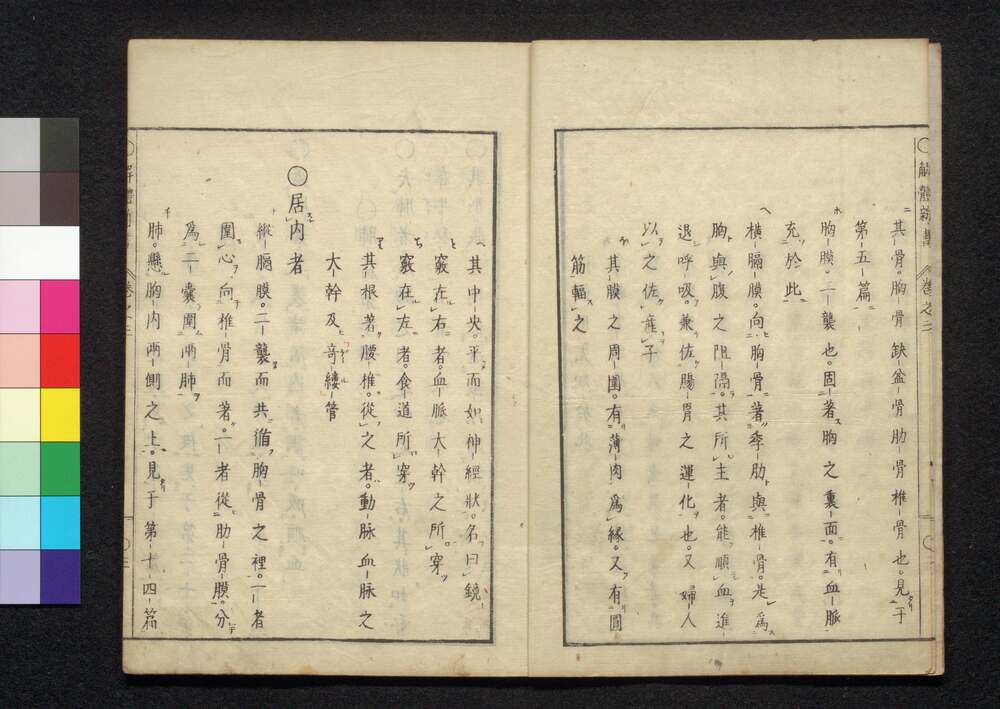 解體新書 卷之三
ニ
其骨。胸骨缺盆骨肋骨椎骨也。見于
第五篇
ホ
胸膜。二襲也。固著胸之裏面。有血脈
充於此
ヘ
橫膈膜。向胸骨。著季肋與椎骨。是爲
胸與腹之阻隔。其所主者。能順血進
退呼吸。兼佐腸胃之運化也。又婦人
以之佐産子
ほ
其膜之周圍。有薄肉爲緣。又有圓
筋輻之
へ
其中央。平而如神經狀。名曰鏡
と
竅在右者。血脈大幹之所穿
ち
竅在左者。食道所穿
り
其根著腰椎。從之者。動脈血脈之
大幹及奇縷管
○居内者
ト
縱膈膜。二襲而共循胸骨之裡。一者
圍心。向椎骨而著。一者從肋骨膜。分
爲二囊。圍兩肺。
チ
肺。懸胸内兩側之上。見于第十四篇